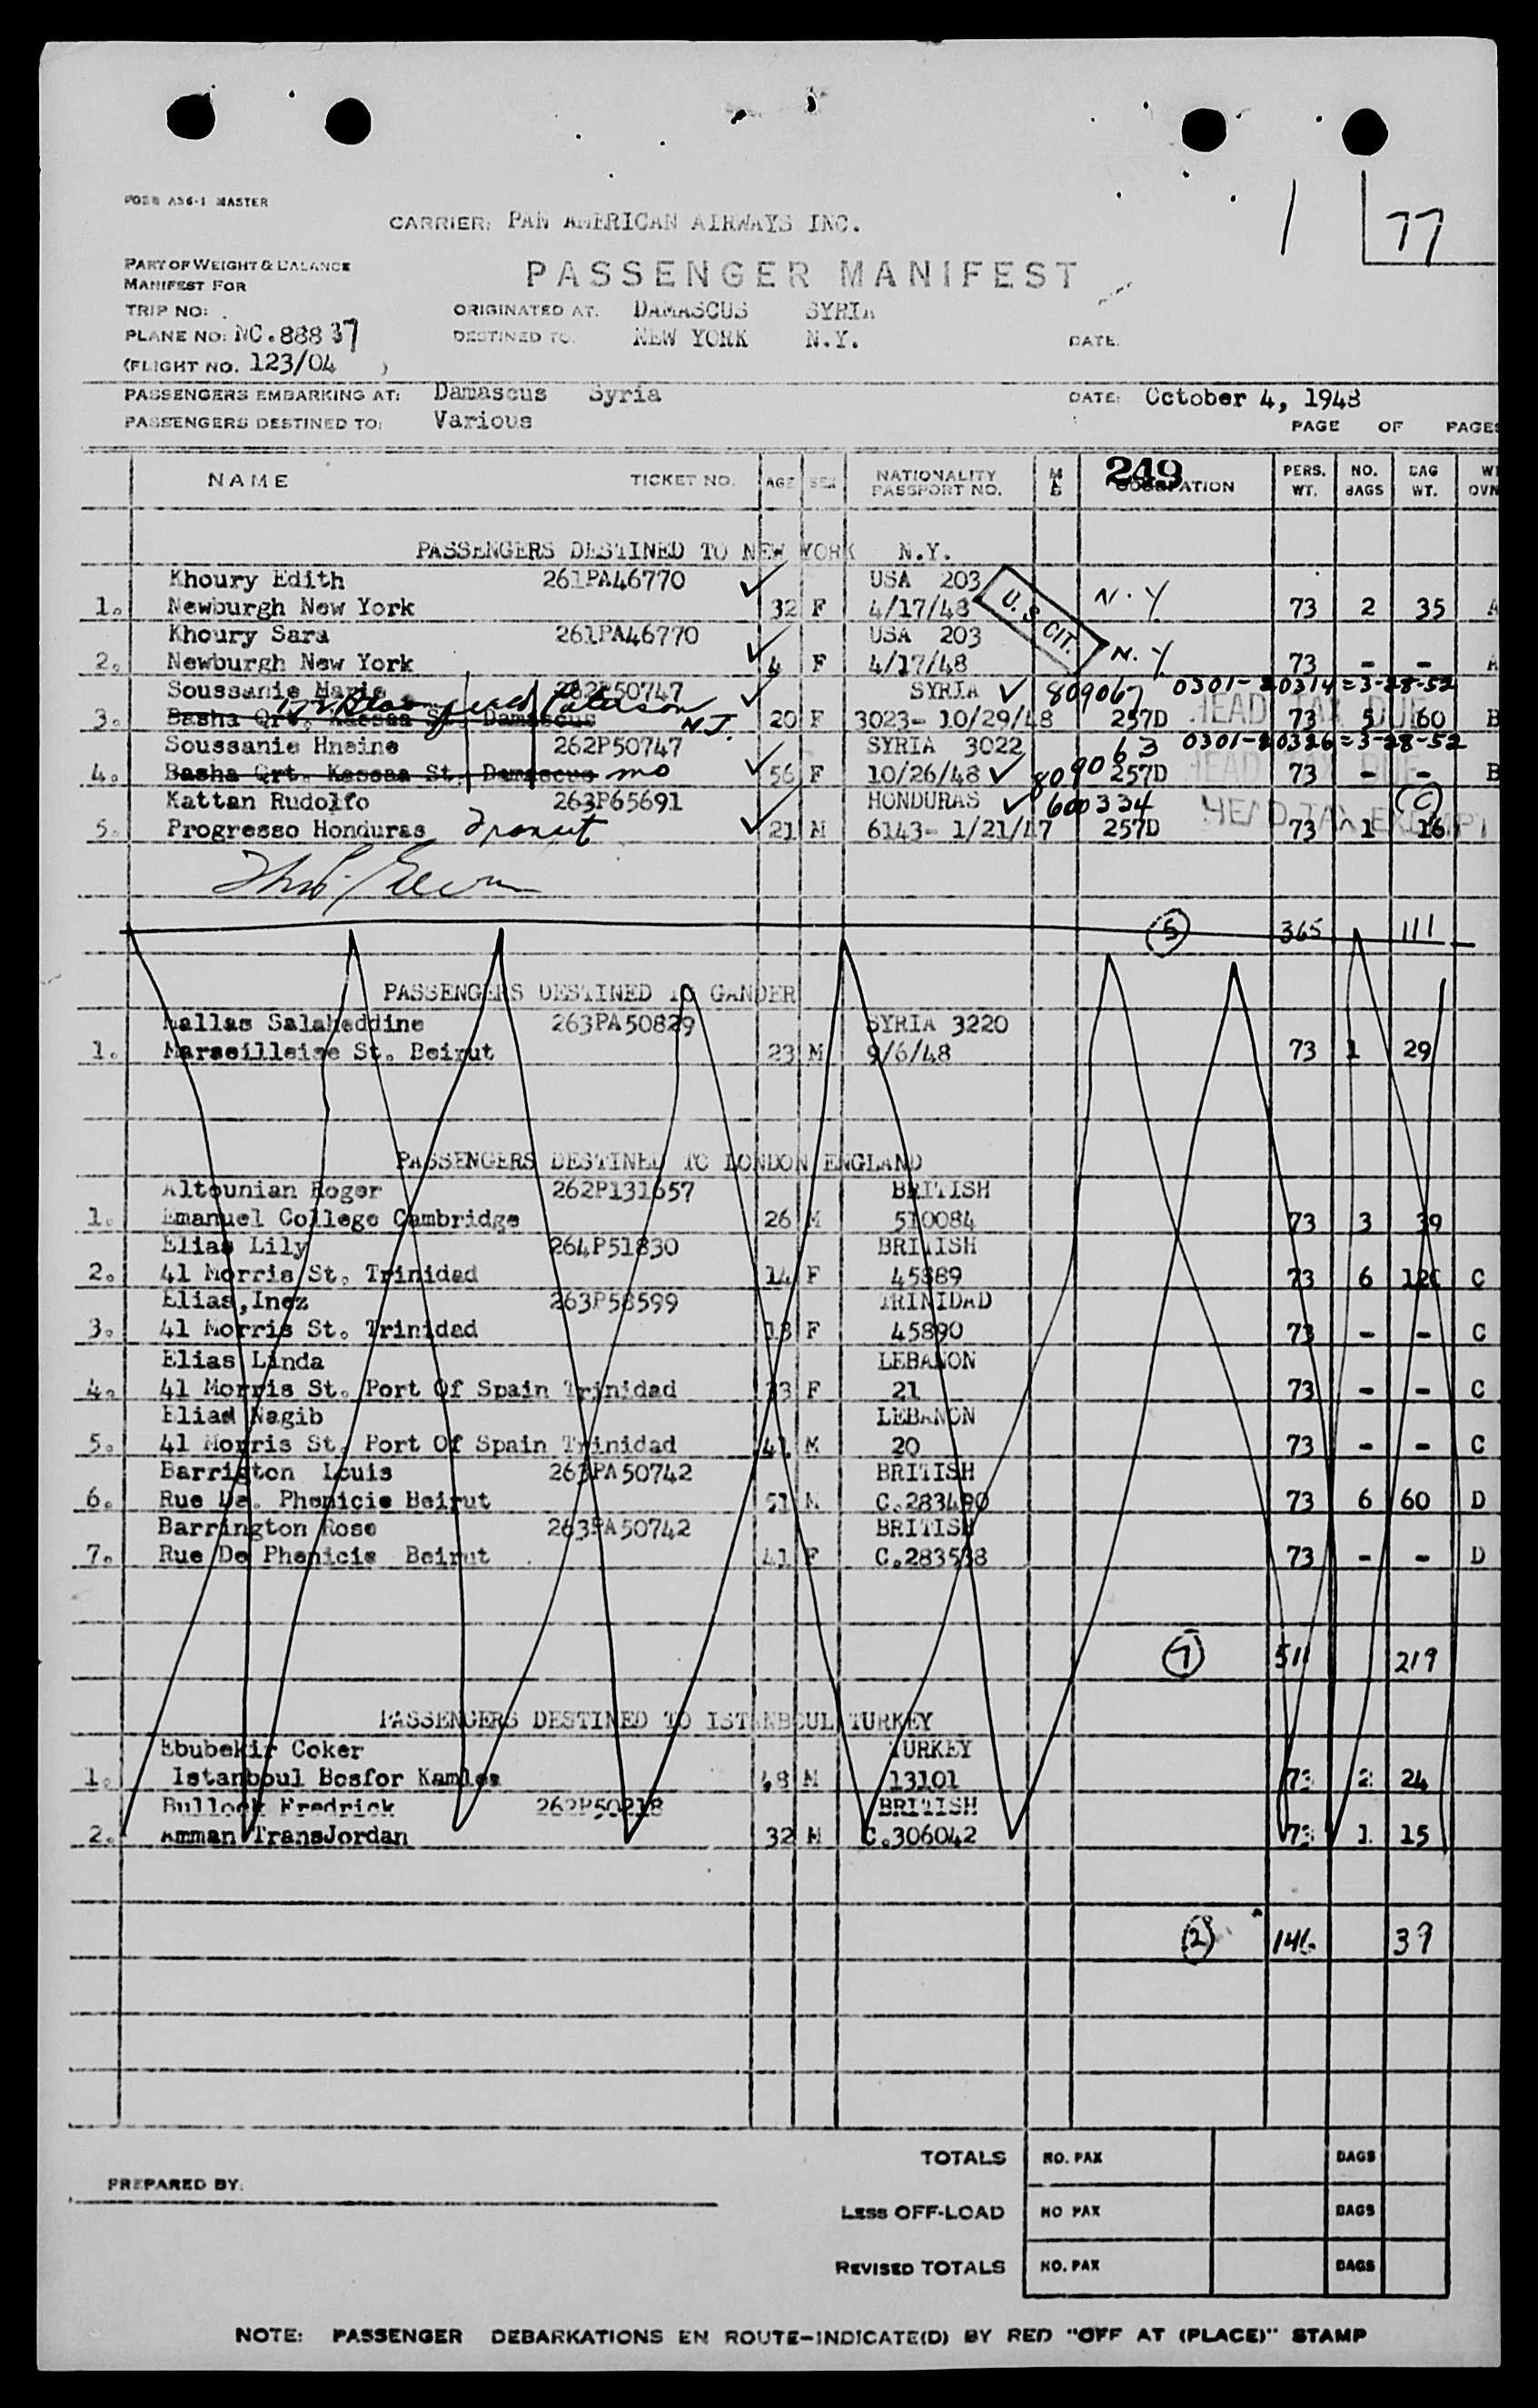 FORM A36-1 MASTER
CARRIER: PAN AMERICAN AIRWAYS INC.
1 77
PART OF WEIGHT & BALANCE
MANIFEST FOR
PASSENGER MANIFEST
TRIP NO:
ORIGINATED AT. DAMASCUS SYRIA
PLANE NO: NC.88837
DESTINED TO. NEW YORK N.Y.
DATE.
(FLIGHT NO. 123/04 )
PASSENGERS EMBARKING AT: Damascus Syria
DATE: October 4, 1948
PASSENGERS DESTINED TO: Various
PAGE OF PAGES
249
NAME TICKET NO. AGE SEX NATIONALITY PASSPORT NO. OCCUPATION PERS. WT. NO. BAGS BAG WT.
PASSENGERS DESTINED TO NEW YORK N.Y.
Khoury Edith 261PA46770 USA 203
1. Newburgh New York 32 F 4/17/48 U.S. CIT. N.Y. 73 2 35 A
Khoury Sara 261PA46770 USA 203
2. Newburgh New York 4 F 4/17/48 N.Y. 73 - - A
Soussanie Marie 262P50747 SYRIA 809067 0301-20314=3-28-52
Paterson N.J.
3. Basha Qrt. Kassaa St. Damascus 20 F 3023- 10/29/48 257D HEAD TAX DUE 73 5 60 B
Soussanie Hneine 262P50747 SYRIA 3022 809063 0301-20326=3-28-52
4. Basha Qrt. Kassaa St. Damascus mo 56 F 10/26/48 257D HEAD TAX DUE 73 - - B
Kattan Rudolfo 263P65691 HONDURAS 600334 (C)
5. Progresso Honduras Transit 21 M 6143- 1/21/47 257D HEAD TAX EXEMPT 73 1 16
5 365 111
PASSENGERS DESTINED TO GANDER
Mallas Salaheddine 263PA50829 SYRIA 3220
1. Marseilleise St. Beirut 23 M 9/6/48 73 1 29
PASSENGERS DESTINED TO LONDON ENGLAND
Altounian Roger 262P131657 BRITISH
1. Emanuel College Cambridge 26 M 510084 73 3 39
Elias Lily 264P51830 BRITISH
2. 41 Morris St. Trinidad 14 F 45889 73 6 120 C
Elias,Inez 263P58599 TRINIDAD
3. 41 Morris St. Trinidad 13 F 45890 73 - - C
Elias Linda LEBANON
4. 41 Morris St. Port Of Spain Trinidad 33 F 21 73 - - C
Elias Nagib LEBANON
5. 41 Morris St. Port Of Spain Trinidad 41 M 20 73 - - C
Barrigton Louis 263PA50742 BRITISH
6. Rue De. Phenicie Beirut 51 M C.283490 73 6 60 D
Barrington Rose 263PA50742 BRITISH
7. Rue De Phenicie Beirut 41 F C.283538 73 - - D
7 511 219
PASSENGERS DESTINED TO ISTANBOUL TURKEY
Ebubekir Coker TURKEY
1. Istanboul Bosfor Kamles 48 M 13101 73 2 24
Bullock Fredrick 262P50218 BRITISH
2. Amman TransJordan 32 M C.306042 73 1 15
2 146 39
TOTALS NO. PAX BAGS
PREPARED BY.
LESS OFF-LOAD NO PAX BAGS
REVISED TOTALS NO. PAX BAGS
NOTE: PASSENGER DEBARKATIONS EN ROUTE-INDICATE(D) BY RED "OFF AT (PLACE)" STAMP